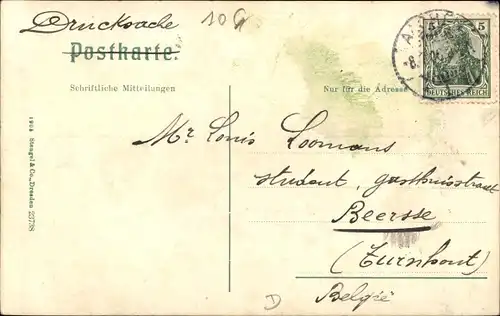 Drucksache
10 G
Postkarte.
Schriftliche Mitteilungen
Nur für die Adresse
5 5
DEUTSCHES REICH
Mr Louis Loomans
student, gasthuisstraat
Beersse
(Turnhout)
België
D
1904 Stengel & Co., Dresden 25738